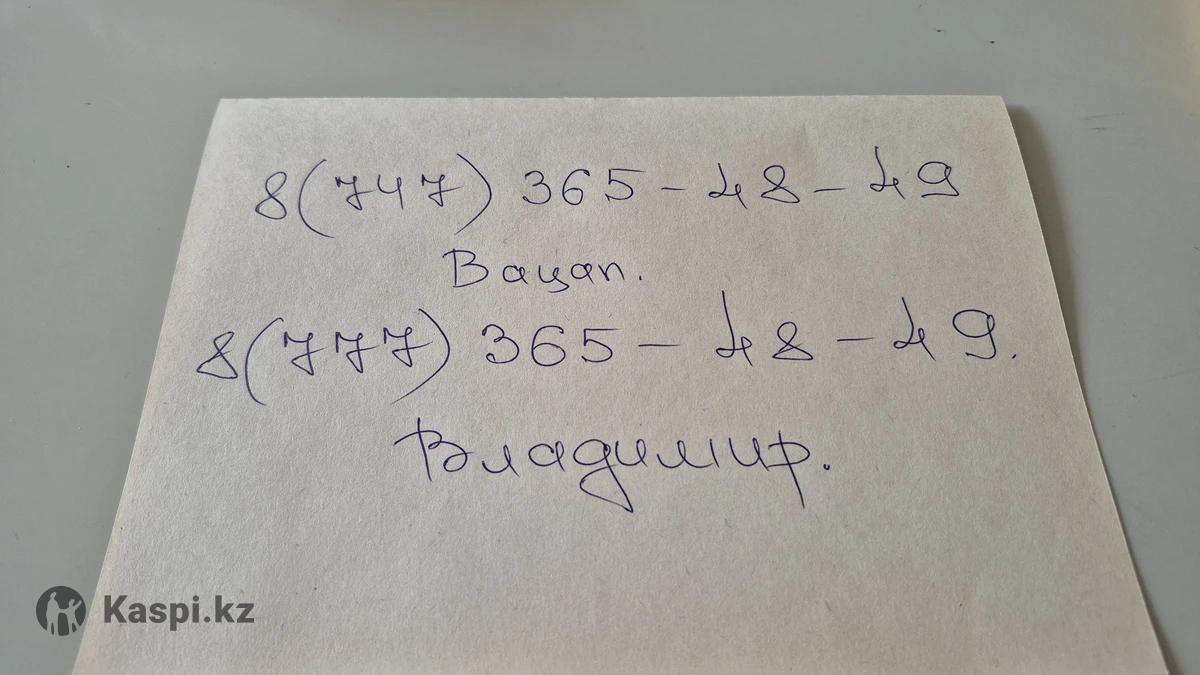 8(747) 365-48-49
Вацап.
8(777) 365-48-49.
Владимир.
Kaspi.kz